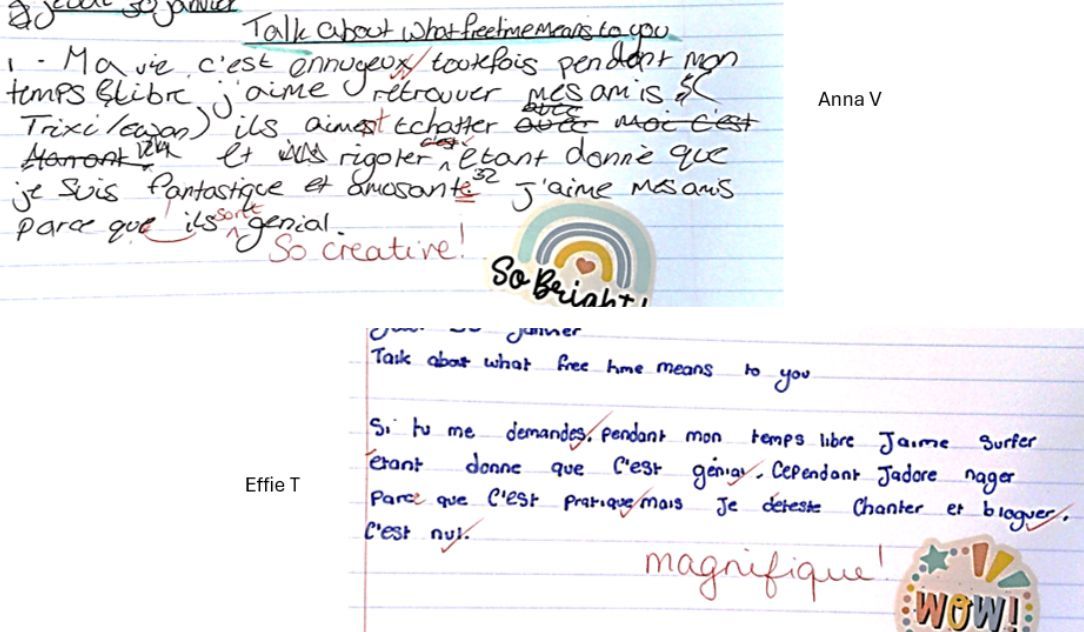 jeudi 30 janvier
Talk about what freetime means to you
1 - Ma vie c'est ennuyeux toutefois pendant mon
temps libre, j'aime retrouver mes amis (
Trixi/ewan) ils aiment tchatter avec moi c'est
et rigoler c'est étant donné que
je suis fantastique et amusante 32 j'aime mes amis
parce que ils sont genial.
So creative!
So Bright!
Anna V
30 janvier
Talk about what free time means to you
Si tu me demandes, pendant mon temps libre J'aime surfer
étant donne que C'est génial. Cependant J'adore nager
Parce que C'est pratique mais Je déteste Chanter et bloguer.
C'est nul.
magnifique!
WOW!
Effie T